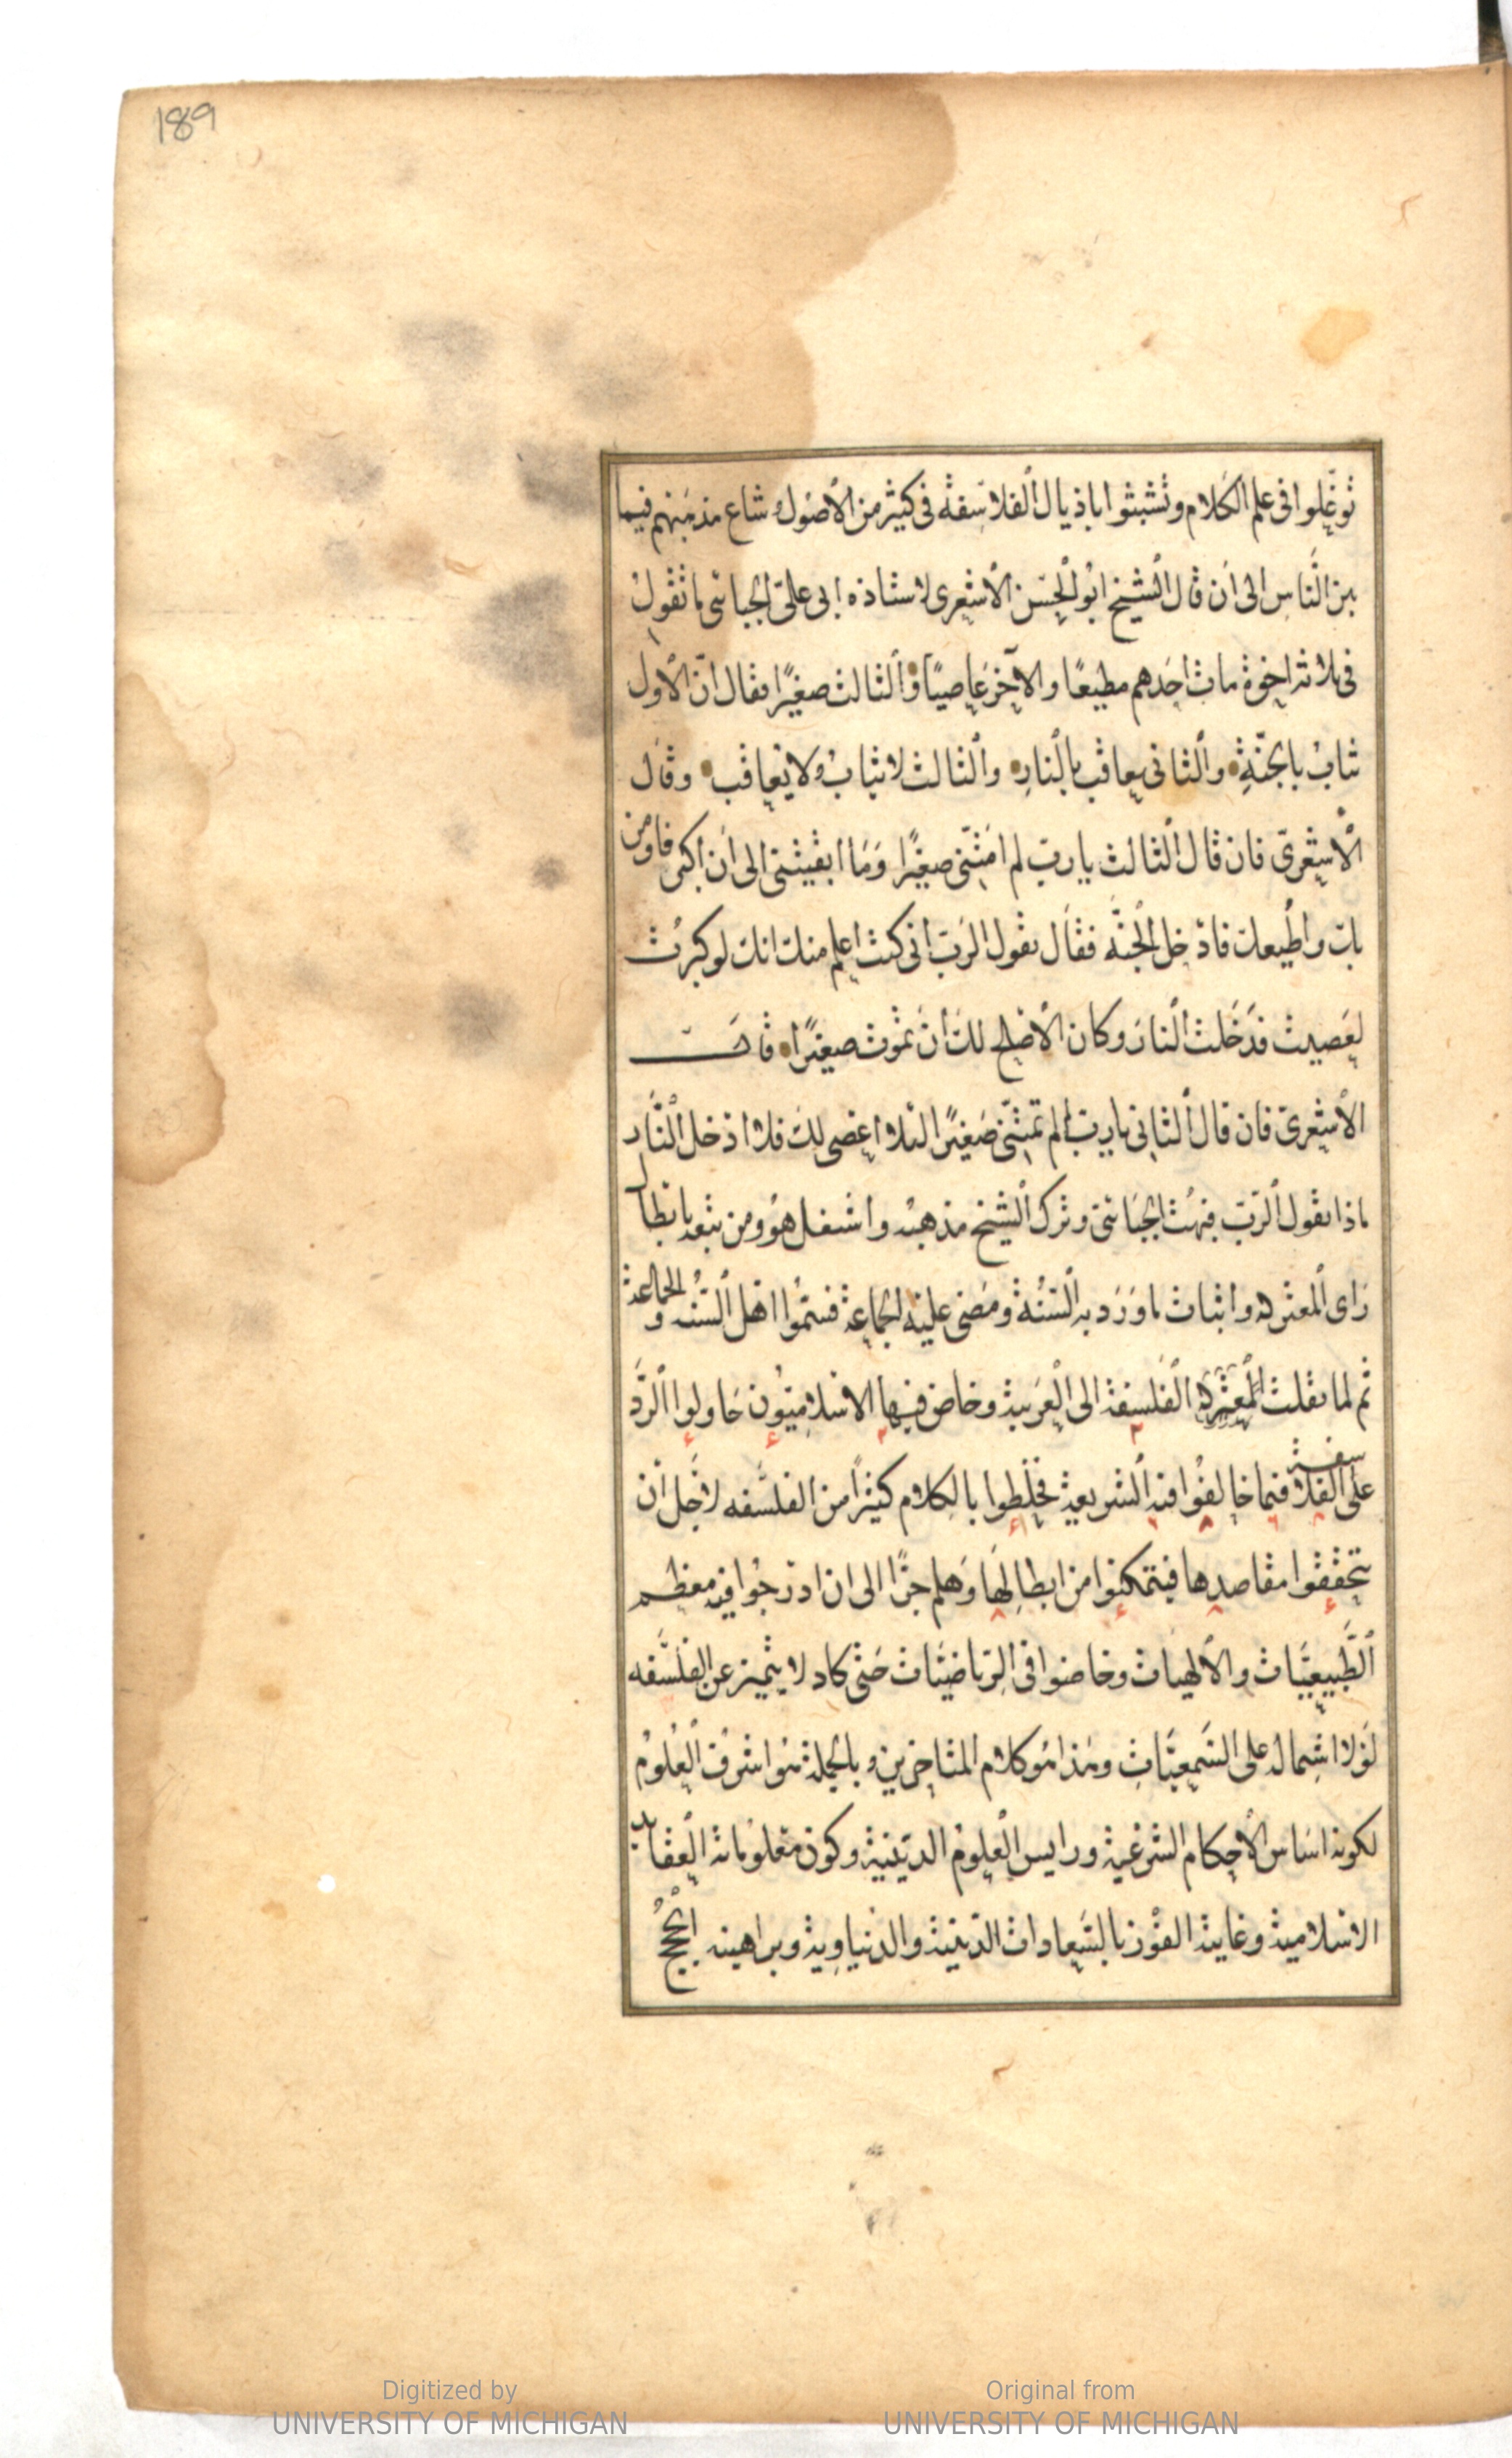 189
توغلوا فى علم الكلام وتشبثوا باذيال الفلاسفة فى كثير من الاصول وشاع مذهبهم فيما
بين الناس الى ان قال الشيخ ابو الحسن الاشعرى لاستاذه ابى على الجبائى ما تقول
فى ثلاثة اخوة مات احدهم مطيعًا والآخر عاصيًا والثالث صغيرًا فقال ان الاول
يثاب بالجنة والثانى يعاقب بالنار والثالث لا يثاب ولا يعاقب وقال
الاشعرى فان قال الثالث يا رب لم امتنى صغيرًا وما ابقيتنى الى ان اكبر فاومن
بك واطيعك فادخل الجنة فقال يقول الرب انى كنت اعلم منك انك لو كبرت
لعصيت فدخلت النار وكان الاصلح لك ان تموت صغيرًا قال
الاشعرى فان قال الثانى يا رب لم لم تمتنى صغيرًا لئلا اعصى لك فلا ادخل النار
ماذا يقول الرب فبهت الجبائى وترك الشيخ مذهبه واشتغل هو ومن تبعه بابطال
راى المعتزله واثبات ما ورد به السنة ومضى عليه الجماعة فسموا اهل السنه والجماعة
ثم لما نقلت المعتزله الفلسفة الى العربية وخاض فيها الاسلاميون حاولوا الرد
على الفلاسفة فيما خالفوا فيه الشريعة فخلطوا بالكلام كثيرًا من الفلسفه لاجل ان
يتحققوا مقاصدها فيتمكنوا من ابطالها وهلم جرًا الى ان ادرجوا فيه معظم
الطبيعيات والالهيات وخاضوا فى الرياضيات حتى كاد لا يتميز عن الفلسفه
لولا اشماله على السمعيات وهذا هو كلام المتاخرين وبالجملة هو اشرف العلوم
لكونه اساس الاحكام الشرعية ورايس العلوم الدينية وكون معلوماته العقايد
الاسلامية وغايته الفوز بالسعادات الدينية والدنياوية وبراهينه الحجج
Digitized by
UNIVERSITY OF MICHIGAN
Original from
UNIVERSITY OF MICHIGAN